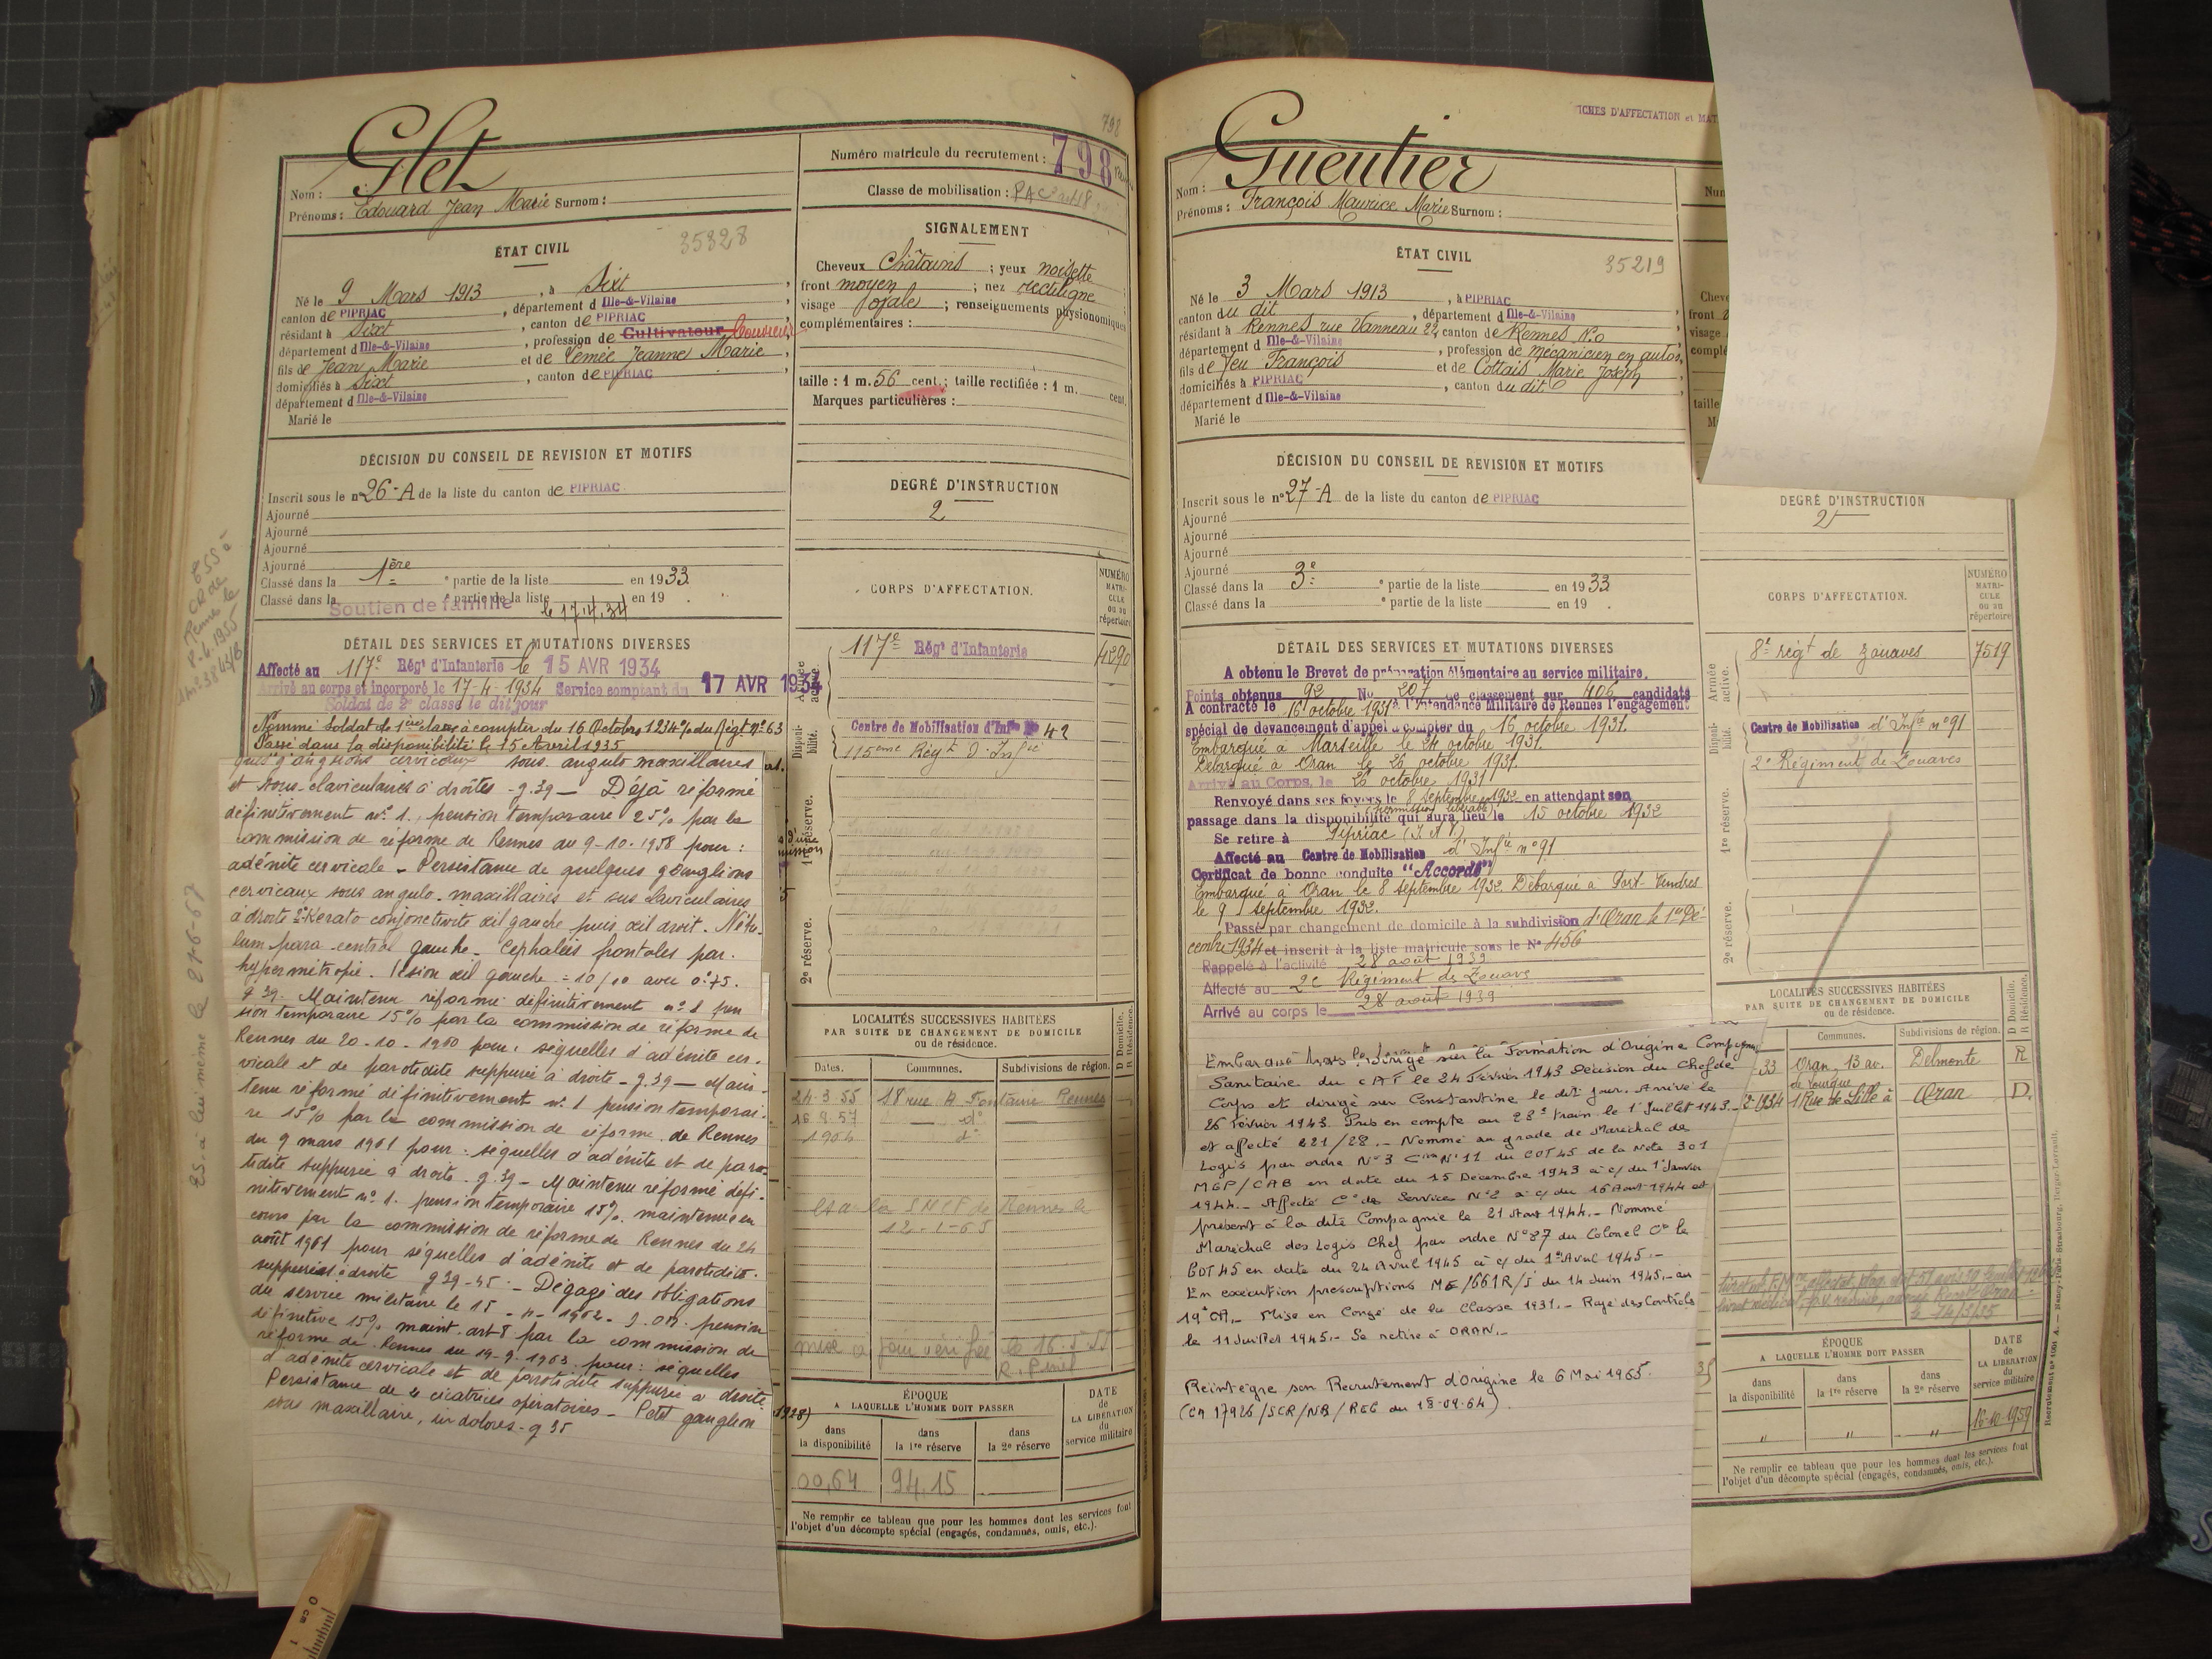 798
Glet
Nom :
Prénoms : Edouard Jean Marie Surnom :
Numéro matricule du recrutement : 798
Classe de mobilisation :
ÉTAT CIVIL
35328
Né le 9 Mars 1913, à Sixt,
canton de PIPRIAC, département d Ille-&-Vilaine
résidant à Sixt, canton de PIPRIAC
département d Ille-&-Vilaine, profession de Cultivateur Couvreur
fils de Jean Marie et de Lemée Jeanne Marie,
domiciliés à Sixt, canton de PIPRIAC
département d Ille-&-Vilaine
Marié le
SIGNALEMENT
Cheveux Châtains ; yeux noisette
front moyen ; nez rectiligne
visage ; renseignements physionomiques
complémentaires :
taille : 1 m. 56 cent. ; taille rectifiée : 1 m. cent.
Marques particulières :
DÉCISION DU CONSEIL DE REVISION ET MOTIFS
Inscrit sous le n° 26-A de la liste du canton de PIPRIAC
Ajourné
Ajourné
Ajourné
Ajourné
Classé dans la 1ère ° partie de la liste en 1933
Classé dans la ° partie de la liste en 19 .
Soutien de famille le 17.4.34
DEGRÉ D'INSTRUCTION
2
DÉTAIL DES SERVICES ET MUTATIONS DIVERSES
Affecté au 117e Régt d'Infanterie le 15 AVR 1934
Arrivé au corps et incorporé le 17-4-1934 Service comptant du 17 AVR 1934
Soldat de 2e classe le dit jour
Nommé Soldat de 1ère classe à compter du 16 Octobre 1934 % du Régt n° 63
Passé dans la disponibilité le 15 Avril 1935
ques ganglions cervicaux sous. angulo maxillaires
et sous-claviculaires à droites - g.39 - Déjà réformé
définitivement n° 1. pension temporaire 25% par la
commission de réforme de Rennes du 9-10-1958 pour :
adénite cervicale - Persistance de quelques ganglions
cervicaux sous angulo-maxillaires et sus claviculaires
à droite 2° Kerato conjonctivite œil gauche puis œil droit. Nébu-
lum para-central gauche - Céphalées frontales par
hypermétropie. Vision œil gauche = 10/10 avec 0.75.
g 39. Maintenu réformé définitivement n° 1 pen
sion temporaire 15% par la commission de réforme de
Rennes du 20-10-1960 pour, séquelles d'adénite cer-
vicale et de parotidite suppurée à droite - g.39 - Main-
tenu réformé définitivement n° 1 pension temporai-
re 15% par la commission de réforme de Rennes
du 9 mars 1961 pour : séquelles d'adénite et de paro-
tidite suppurée à droite. g.39 - Maintenu réformé défi-
nitivement n° 1. pension temporaire 15% maintenue en
cours par la commission de réforme de Rennes du 24
août 1961 pour séquelles d'adénite et de parotidite
suppurées à droite g 39-45 - Dégagé des obligations
du service militaire le 15-4-1962 - pension
définitive 15% maint. art 8 par la commission de
réforme de Rennes du 19-9-1963 pour : séquelles
d'adénite cervicale et de parotidite suppurée à droite.
Persistance de 4 cicatrices opératoires - Petit ganglion
sous maxillaire, g 35
CORPS D'AFFECTATION.
NUMÉRO MATRICULE OU DU répertoire
Armée active.
117e Régt d'Infanterie 4290
Disponibilité.
Centre de Mobilisation d'Infie N° 42
115ème Régt d'Infie
1re réserve.
2e réserve.
LOCALITÉS SUCCESSIVES HABITÉES
PAR SUITE DE CHANGEMENT DE DOMICILE
ou de résidence.
D Domicile. R Résidence.
Dates. Communes. Subdivisions de région.
24-3-55 18 rue Fontaine Rennes
16.9.57 d°
1964 d°
SNCF de Rennes le
12-1-65
mise à jour vérifiée le 16.5.55
ÉPOQUE
A LAQUELLE L'HOMME DOIT PASSER
DATE de LA LIBÉRATION du service militaire
dans la disponibilité
dans la 1re réserve
dans la 2e réserve
00,64 94.15
Ne remplir ce tableau que pour les hommes dont les services font
l'objet d'un décompte spécial (engagés, condamnés, omis, etc.).
FICHES D'AFFECTATION et MAT
Gueutier
Nom :
Prénoms : François Maurice Marie Surnom :
ÉTAT CIVIL
35219
Né le 3 Mars 1913, à PIPRIAC
canton du dit, département d Ille-&-Vilaine
résidant à Rennes rue Vanneau 22, canton de Rennes N.O
département d Ille-&-Vilaine, profession de mécanicien en autos,
fils de feu François et de Collais Marie Joseph,
domiciliés à PIPRIAC, canton du dit
département d Ille-&-Vilaine
Marié le
DÉCISION DU CONSEIL DE REVISION ET MOTIFS
Inscrit sous le n° 27-A de la liste du canton de PIPRIAC
Ajourné
Ajourné
Ajourné
Ajourné
Classé dans la 3e ° partie de la liste en 1933
Classé dans la ° partie de la liste en 19 .
DEGRÉ D'INSTRUCTION
2
DÉTAIL DES SERVICES ET MUTATIONS DIVERSES
A obtenu le Brevet de préparation élémentaire au service militaire.
Points obtenus 92 No 207 de classement sur 406 candidats
A contracté le 16 octobre 1931 à l'Intendance Militaire de Rennes l'engagement
spécial de devancement d'appel à compter du 16 octobre 1931.
Embarqué à Marseille le 24 octobre 1931.
Débarqué à Oran le 26 octobre 1931.
Arrivé au Corps, le 26 octobre 1931
Renvoyé dans ses foyers le 8 septembre 1932 en attendant son
(permission libérable)
passage dans la disponibilité qui aura lieu le 15 octobre 1932
Se retire à Pipriac (I. & V.)
Affecté au Centre de Mobilisation d'Infie n° 91
Certificat de bonne conduite "Accordé"
Embarqué à Oran le 8 septembre 1932. Débarqué à Port-Vendres
le 9 septembre 1932.
Passé par changement de domicile à la subdivision d'Oran le 1er Dé-
cembre 1934 et inscrit à la liste matricule sous le N° 456
Rappelé à l'activité 28 août 1939
Affecté au 2e Régiment de Zouave
Arrivé au corps le 28 août 1939
sur la Formation d'Origine Compagnie
Sanitaire du CAT le 24 Février 1943 Décision du Chef de
Corps et dirigé sur Constantine le dit jour. Arrivé le
26 Février 1943. Pris en compte au 28e train le 1er Juillet 1943.-
et affecté 221/28.- Nommé au grade de Maréchal des
Logis par ordre N°3 N°11 du COT 45 de la Note 301
MGP/CAB en date du 15 Décembre 1943 à c/ du 1er Janvier
1944.- Affecté Cie de Service N°2 à c/ du 16 Août 1944 et
présent à la dite Compagnie le 21 Août 1944.- Nommé
Maréchal des Logis Chef par ordre N°27 du Colonel Ct le
COT 45 en date du 24 Avril 1945 à c/ du 1er Avril 1945.-
En exécution prescriptions ME/661R/S du 14 Juin 1945.- au
19e CA.- Mise en Congé de la Classe 1931.- Rayé des Contrôles
le 11 Juillet 1945.- Se retire à ORAN.-
Réintègre son Recrutement d'Origine le 6 Mai 1965.
(CA 17926/SCR/NB/REC du 18-09-64).
CORPS D'AFFECTATION.
NUMÉRO MATRICULE OU DU répertoire
Armée active.
8e régt de zouaves 7519
Disponibilité.
Centre de Mobilisation d'Infie n° 91
2e Régiment de Zouaves
1re réserve.
2e réserve.
LOCALITÉS SUCCESSIVES HABITÉES
PAR SUITE DE CHANGEMENT DE DOMICILE
ou de résidence.
D Domicile. R Résidence.
Communes. Subdivisions de région.
33 Oran, 13 av. Delmonte R
1934 1 Rue de Lille à Oran D.
ÉPOQUE
A LAQUELLE L'HOMME DOIT PASSER
DATE de LA LIBÉRATION du service militaire
dans la disponibilité
dans la 1re réserve
dans la 2e réserve
" " " 16-10-1959
Ne remplir ce tableau que pour les hommes dont les services font
l'objet d'un décompte spécial (engagés, condamnés, omis, etc.).
0 cm 1